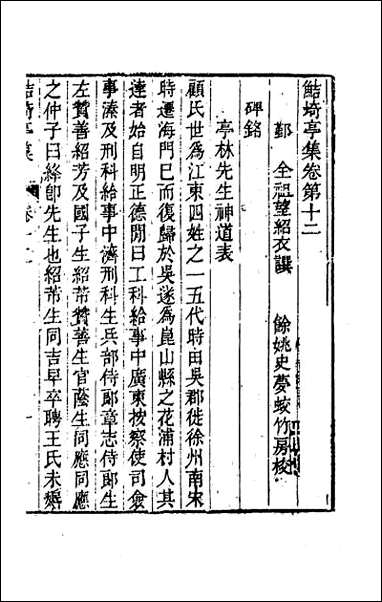 鮚埼亭集卷第十二
鄞　全祖望紹衣譔　餘姚史夢蛟竹房校
碑銘
亭林先生神道表
顧氏世爲江東四姓之一五代時由吳郡徙徐州南宋
時遷海門已而復歸於吳遂爲崑山縣之花浦村人其
達者始自明正德閒曰工科給事中廣東按察使司僉
事溱及刑科給事中濟刑科生兵部侍郞章志侍郞生
左贊善紹芳及國子生紹芾贊善生官蔭生同應同應
之仲子曰絳卽先生也紹芾生同吉早卒聘王氏未婚
鮚埼亭集
卷十二
一